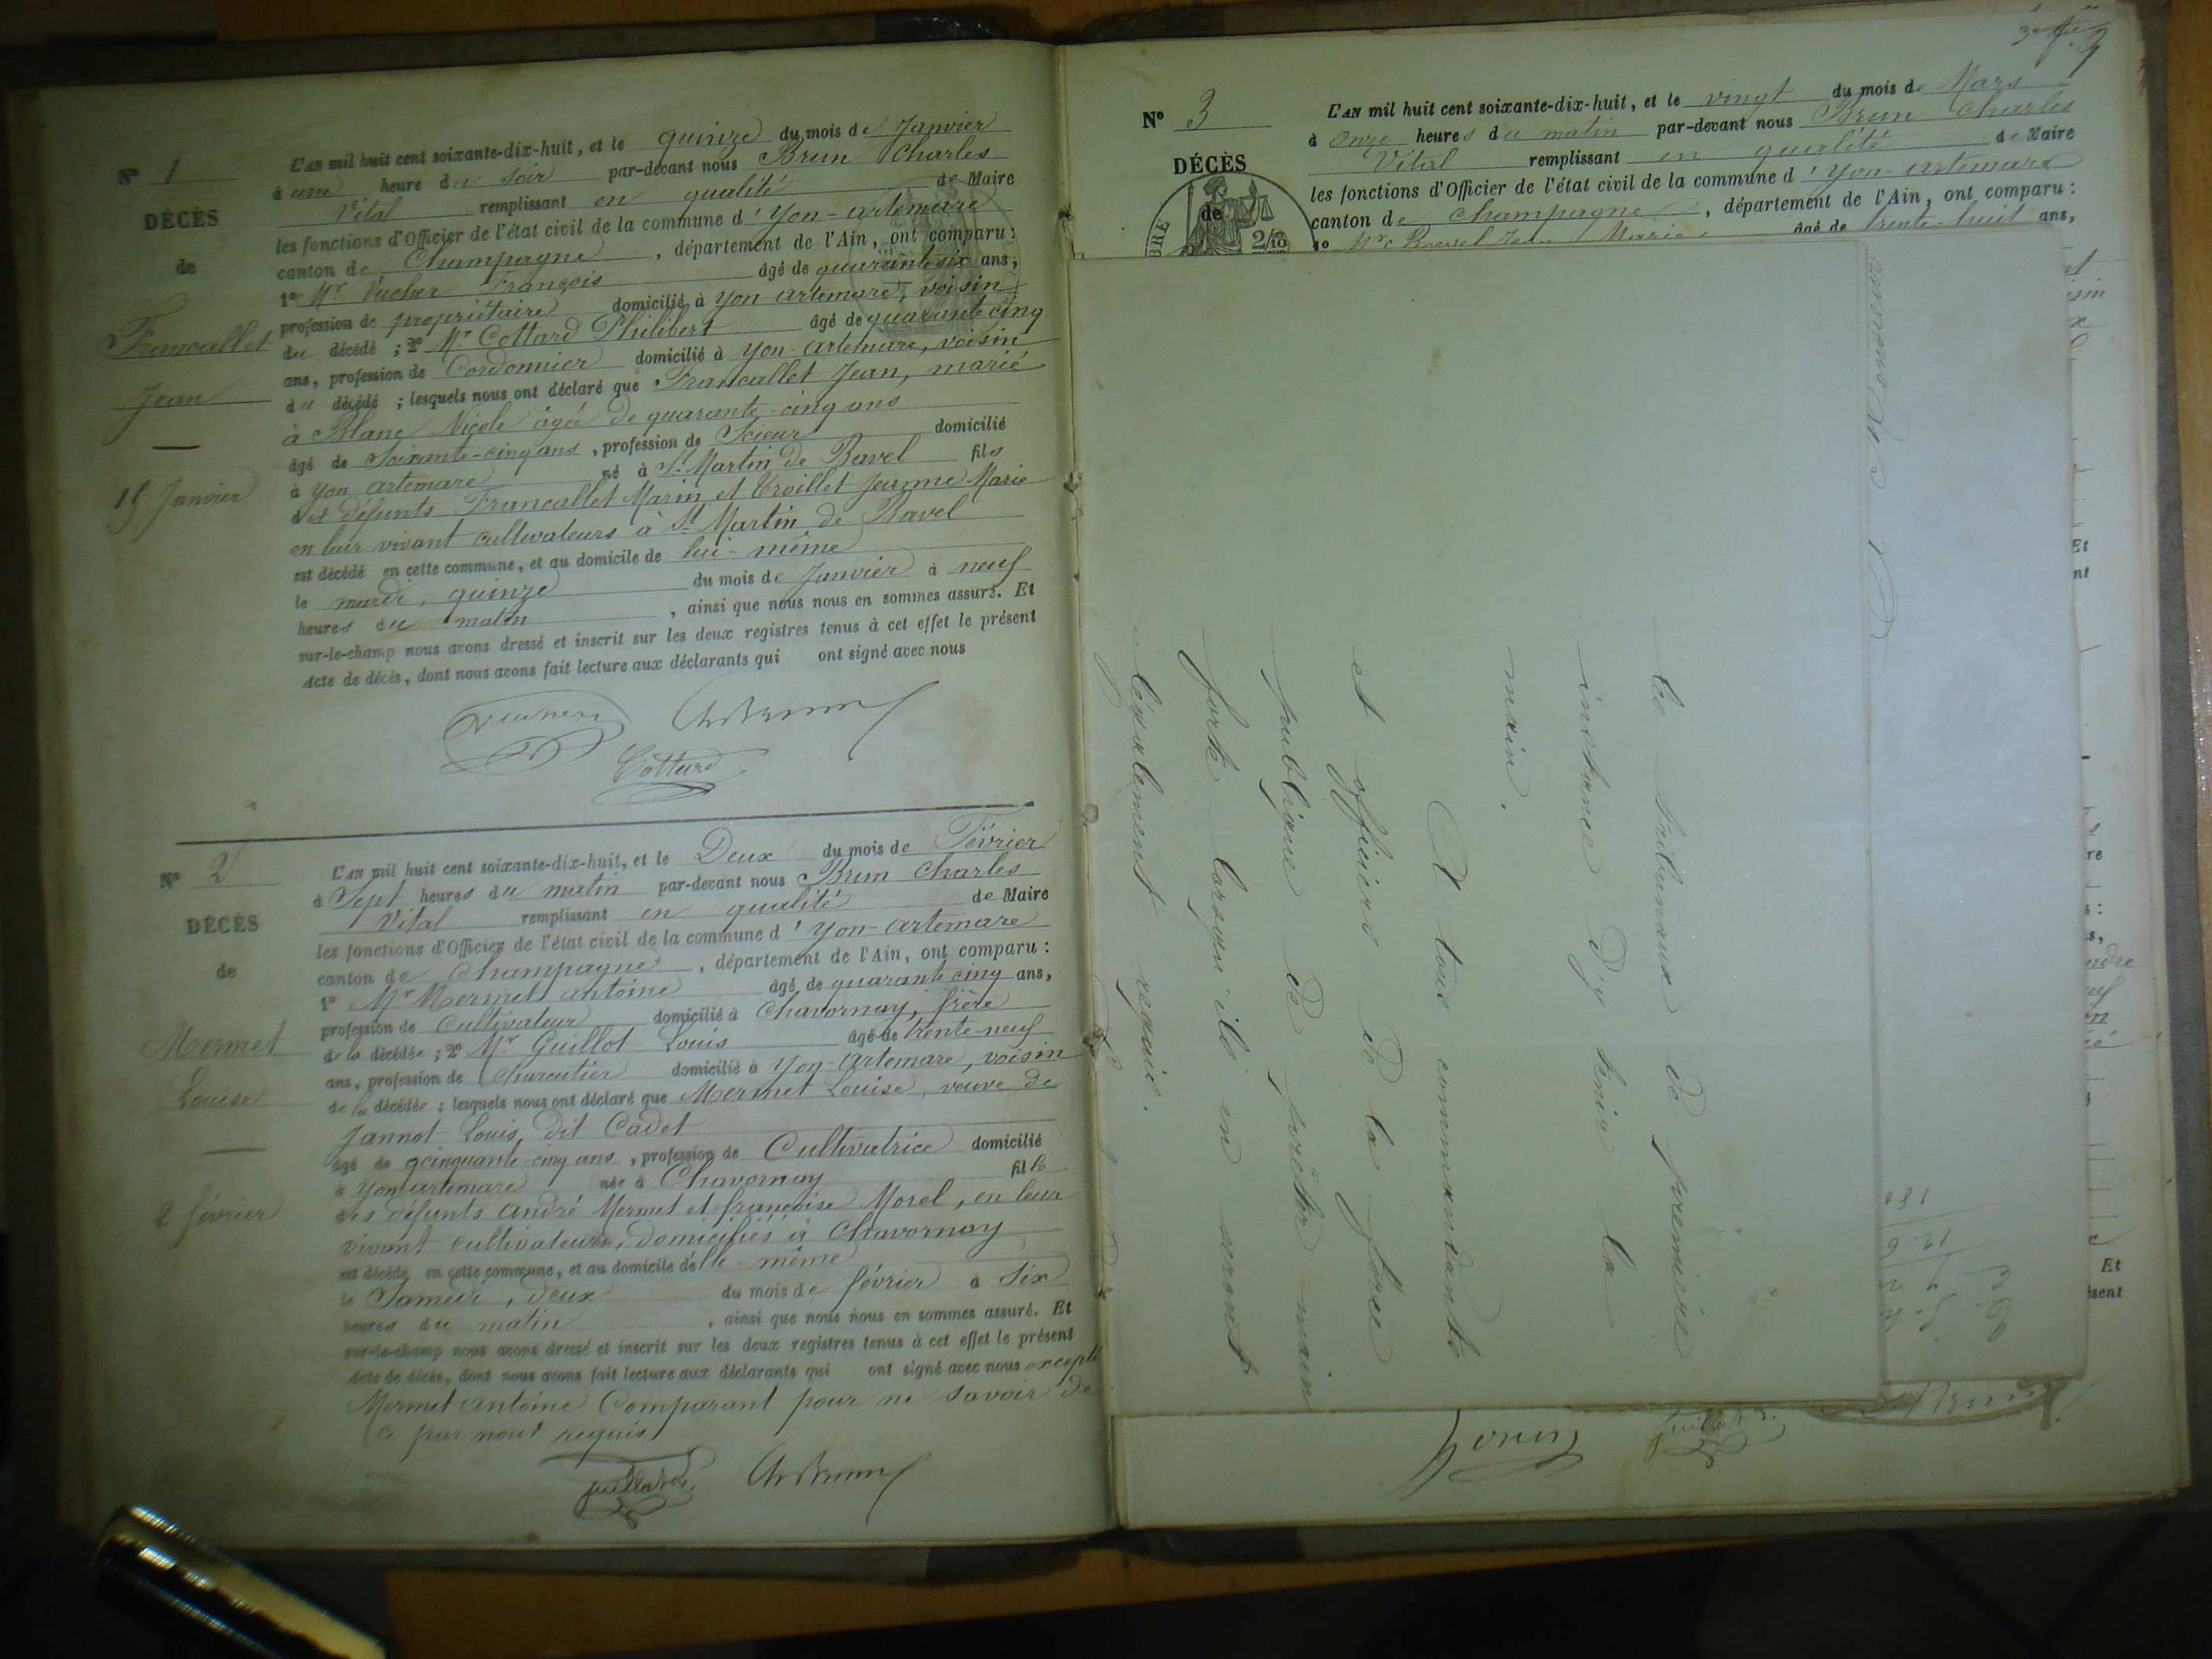 N° 1
DÉCÈS
de
Francallet
Jean
15 Janvier
L'AN mil huit cent soixante-dix-huit, et le quinze du mois de Janvier
à une heure du soir par-devant nous Brun Charles
Vital remplissant en qualité de Maire
les fonctions d'Officier de l'état civil de la commune d'Yon-artemare
canton de Champagne, département de l'Ain, ont comparu :
1° Mr Vucher François âgé de quarante six ans,
profession de propriétaire domicilié à yon-artemare, voisin
du décédé ; 2° Mr Cottard Philibert âgé de quarante cinq
ans, profession de Cordonnier domicilié à yon-artemare, voisin
du décédé ; lesquels nous ont déclaré que Francallet Jean, marié
à Blanc Nicole âgée de quarante-cinq ans
âgé de Soixante-cinq ans, profession de Scieur domicilié
à yon artemare né à St Martin de Bavel fils
des défunts Francallet Marin et Troillet Jeanne Marie
en leur vivant cultivateurs à St Martin de Bavel
est décédé en cette commune, et au domicile de lui-même
le mardi, quinze du mois de Janvier à neuf
heures du matin, ainsi que nous nous en sommes assuré. Et
sur-le-champ nous avons dressé et inscrit sur les deux registres tenus à cet effet le présent
Acte de décès, dont nous avons fait lecture aux déclarants qui ont signé avec nous
Cottard
N° 2
DÉCÈS
de
Mermet
Louise
2 février
L'AN mil huit cent soixante-dix-huit, et le Deux du mois de Février
à Sept heures du matin par-devant nous Brun Charles
Vital remplissant en qualité de Maire
les fonctions d'Officier de l'état civil de la commune d'yon-artemare
canton de Champagne, département de l'Ain, ont comparu :
1° Mr Mermet antoine âgé de quarante cinq ans,
profession de Cultivateur domicilié à Chavornay, frère
de la décédée ; 2° Mr Guillot Louis âgé de trente-neuf
ans, profession de Charcutier domicilié à yon-artemare, voisin
de la décédée ; lesquels nous ont déclaré que Mermet Louise, veuve de
Jannot Louis, dit Cadet
âgé de cinquante-cinq ans, profession de Cultivatrice domicilié
à yon artemare née à Chavornay fille
des défunts andré Mermet et françoise Morel, en leur
vivant cultivateurs, domiciliés à Chavornay
est décédé en cette commune, et au domicile d'elle-même
le Samedi, deux du mois de février à six
heures du matin, ainsi que nous nous en sommes assuré. Et
sur-le-champ nous avons dressé et inscrit sur les deux registres tenus à cet effet le présent
Acte de décès, dont nous avons fait lecture aux déclarants qui ont signé avec nous excepté
Mermet antoine Comparant pour ne savoir de
ce par nous requis
N° 3
DÉCÈS
de
2/10
L'AN mil huit cent soixante-dix-huit, et le vingt du mois de Mars
à onze heures du matin par-devant nous Brun Charles
Vital remplissant en qualité de Maire
les fonctions d'Officier de l'état civil de la commune d'yon-artemare
canton de Champagne, département de l'Ain, ont comparu :
1° Mr Marie âgé de trente-huit ans,
les tribunaux de première
instance d'y tenir la
main.
A tous commandants
et officiers de la force
publique de prêter main
forte lorsqu'ils en seront
légalement requis.
Et